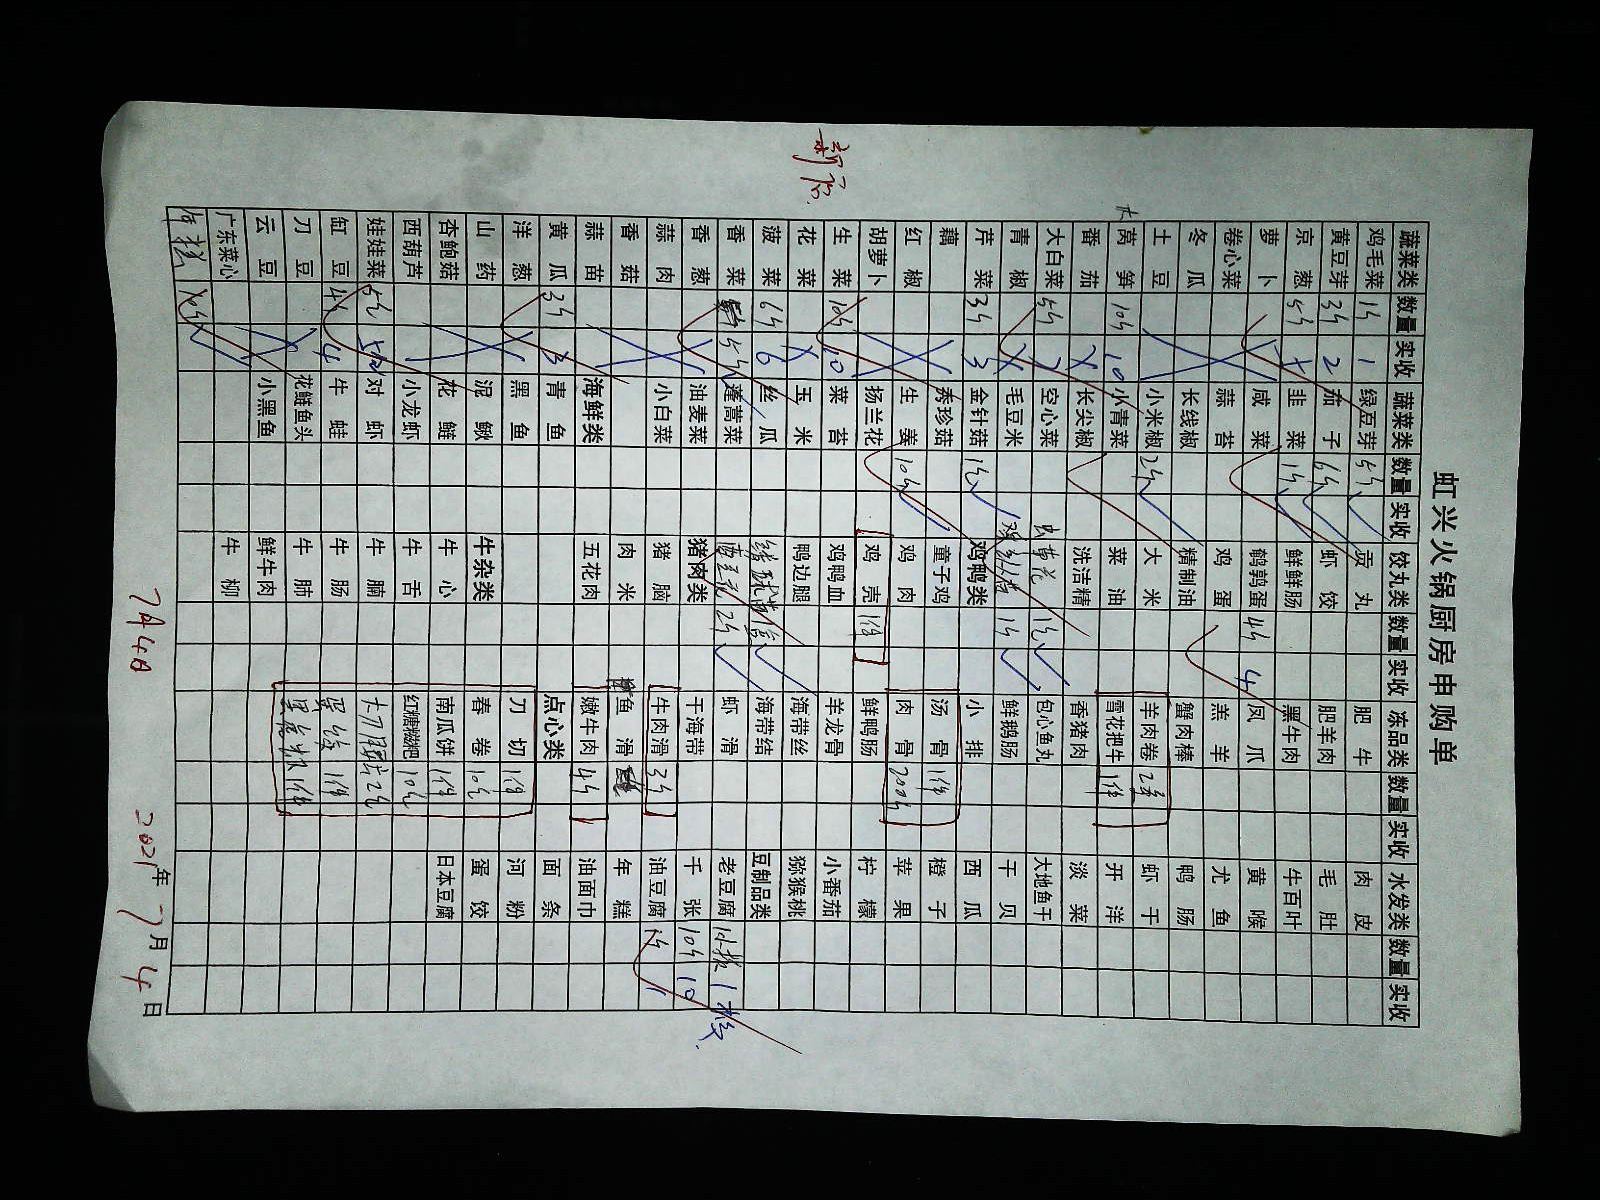 虹兴火锅厨房申购单
蔬菜类 数量 实收 蔬菜类 数量 实收 饺丸类 数量 实收 冻品类 数量 实收 水发类 数量 实收
鸡毛菜 1斤 1 绿豆芽 5斤 贡丸 肥牛 肉皮
黄豆芽 3斤 2 茄子 6斤 虾饺 肥羊肉 毛肚
京葱 5斤 韭菜 1斤 鲜鲜肠 黑牛肉 牛百叶
萝卜 咸菜 鹌鹑蛋 4斤 4 凤爪 黄喉
卷心菜 蒜苔 鸡蛋 羔羊 尤鱼
冬瓜 长线椒 精制油 蟹肉棒 鸭肠
土豆 小米椒 2斤 大米 羊肉卷 虾干
大 莴笋 10斤 10 小青菜 菜油 雪花把牛 1件 开洋
番茄 长尖椒 洗洁精 香猪肉 淡菜
大白菜 5斤 空心菜 虫草花 1斤 包心鱼丸 大地鱼干
青椒 毛豆米 1斤 鲜鹅肠 干贝
芹菜 3斤 3 金针菇 鸡鸭类 小排 西瓜
藕 秀珍菇 童子鸡 汤骨 1件 橙子
红椒 生姜 10斤 鸡肉 肉骨 200斤 苹果
胡萝卜 扬兰花 鸡壳 1件 鲜鸭肠 柠檬
生菜 10斤 10 菜苔 鸡鸭血 羊龙骨 小番茄
花菜 玉米 鸭边腿 海带丝 猕猴桃
菠菜 6斤 6 丝瓜 海带结 豆制品类
香菜 5斤 蓬蒿菜 2斤 虾滑 老豆腐 1板 1板
香葱 油麦菜 猪肉类 干海带 千张 10斤 10
蒜肉 小白菜 猪脑 牛肉滑 3斤 油豆腐 1斤 1
香菇 肉米 鱼滑 年糕
蒜苗 海鲜类 五花肉 嫩牛肉 4斤 油面巾
黄瓜 3斤 3 青鱼 点心类 面条
洋葱 黑鱼 刀切 1件 河粉
山药 泥鳅 牛杂类 春卷 10包 蛋饺
杏鲍菇 花鲢 牛心 南瓜饼 1件 日本豆腐
西葫芦 小龙虾 牛舌 红糖糍粑 10包
娃娃菜 5斤 对虾 牛腩
缸豆 4斤 4 牛蛙 牛肠 1件
刀豆 花鲢鱼头 牛肺 1件
云豆 小黑鱼 鲜牛肉
广东菜心 牛柳
7月4日 2021年7月4日